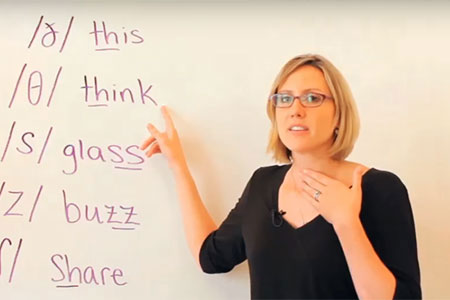 /ð/ this
/θ/ think
/s/ glass
/z/ buzz
/ʃ/ Share